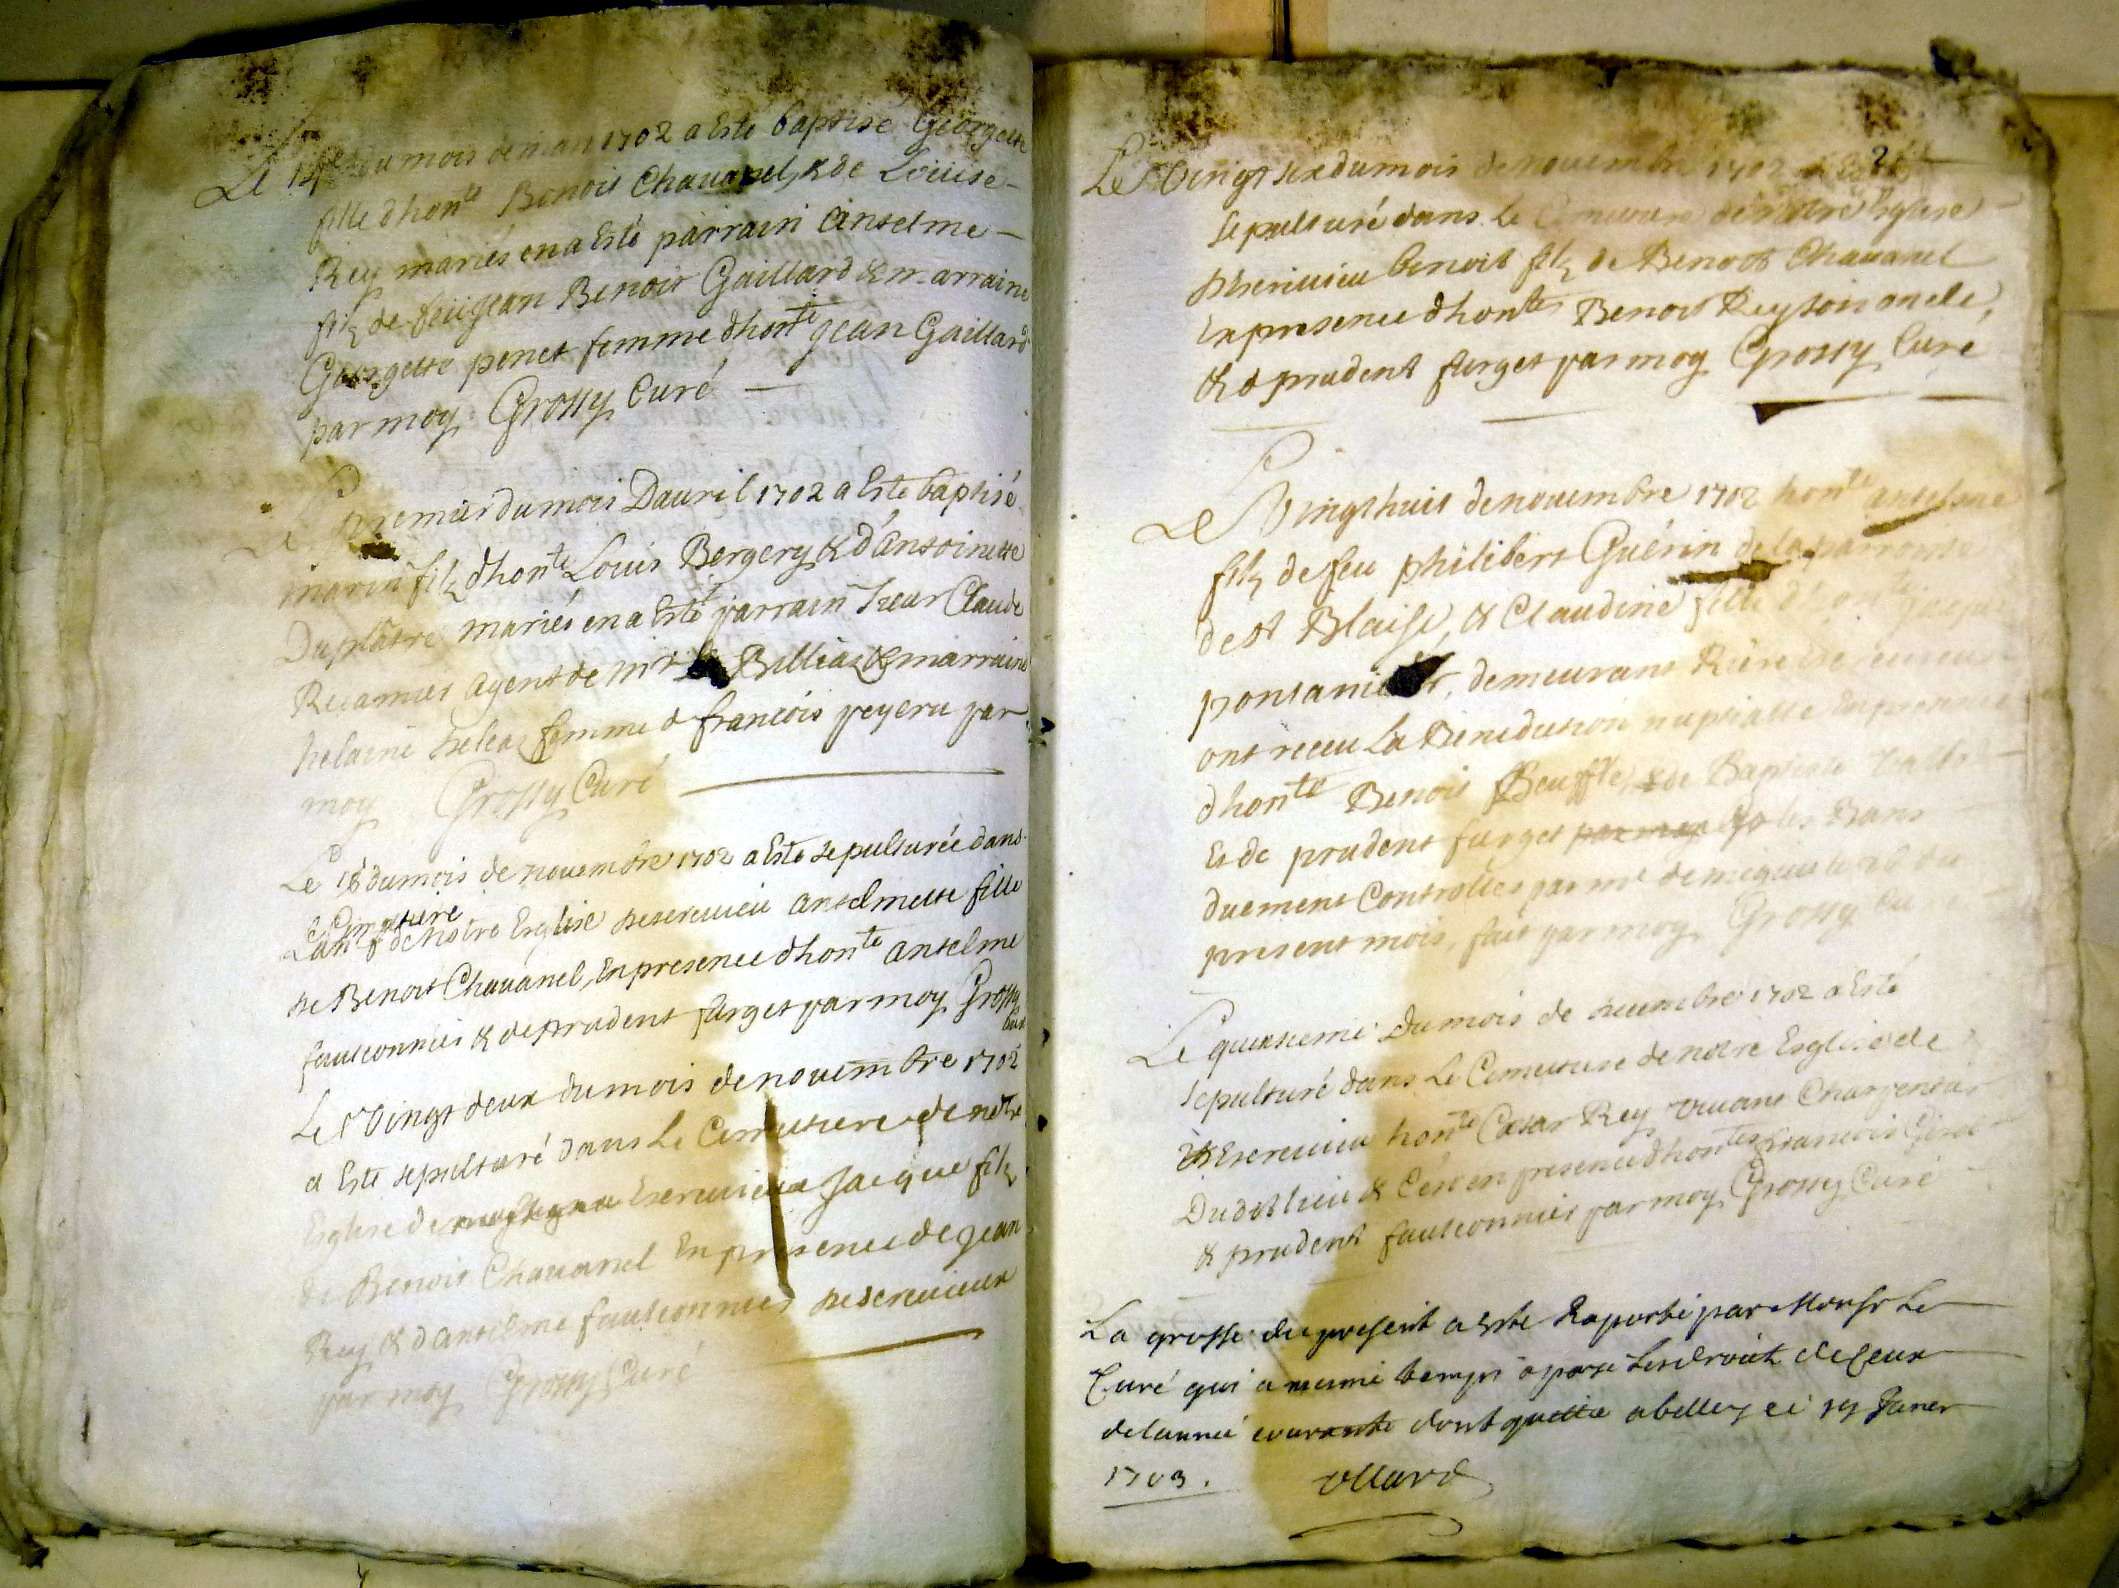 Le 14e du mois de mars 1702 a Este baptisé Georgette
fille dhonte Benoit Chauanel, & de Louise
Rey mariés en a Esté parrain Anselme
filz de feu jean Benoit Gaillard & marraine
Georgette penet femme dhonte jean Gaillard
par moy Grossy Curé
Le premier du mois Dauril 1702 a Este baptisé
marin filz dhonte Louis Bergery & d'Antoinette
Duplâtre mariés en a Esté parrain sieur Claude
Recamier agent de mr Billiaz & marraine
helaine femme d françois peyeru par
moy Grossy Curé
Le 18 du mois de nouembre 1702 a Este sepulturée dans
Cimetiere
de Notre Esglise Anselmette fille
de Benoit Chauanel, En presence dhonte Anselme
fauconnier & de prudent furget par moy Grossy
Curé
Le Vingt deux du mois de nouembre 1702
a Este sepulturé dans Le Cemetiere de notre
Esglise de Jacque filz
de Benoit Chauanel En presence de jean
Rey & danselme fauconnier
par moy Grossy Curé
2
Le Vingt six du mois de nouembre 1702
sepulturé dans Le Cemetiere de notre Esglise
benoit filz de Benoit Chauanel
En presence dhonte Benoit Rey son oncle,
& d prudent furget par moy Grossy Curé
Le Vingt huit de nouembre 1702 honte anselme
filz de feu philibert Guérin de la parroisse
de st Blaise, & Claudine fille
demeurant Riere
ont receu La Benediction nuptialle En presence
dhonte Benoit & de Baptiste
Et de prudent furget par moy les Bans
duement Controllés par mr du
present mois, fait par moy Grossy Curé
Le du mois de 1702 a Esté
sepulturé dans Le Cemetiere de notre Esglise de
honte Cesar Rey viuant Charpentier
Dudit lieu & C'est en presence dhontes francois
& prudent fauconnier par moy Grossy Curé
La grosse du present a Este Raporté par Monsr Le
Curé qui a mesme temps a payé Les droits de Ceux
de lanneé courante dont quitte a belley ce 19 Janer
1703.